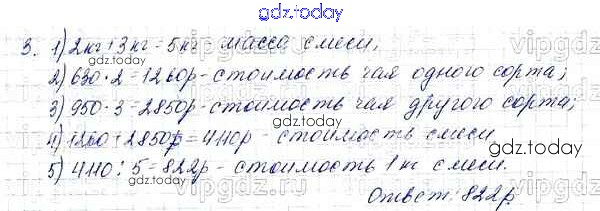 gdz.today
3. 1) 2кг+3кг=5кг масса смеси;
2) 630·2=1260р-стоимость чая одного сорта;
3) 950·3=2850р-стоимость чая другого сорта;
4) 1260+2850р=4110р - стоимость смеси
5) 4110:5=822р-стоимость 1 кг смеси.
Ответ: 822р
gdz.today
gdz.today